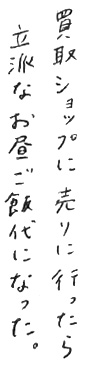 買取ショップに売りに行ったら
立派なお昼ご飯代になった。